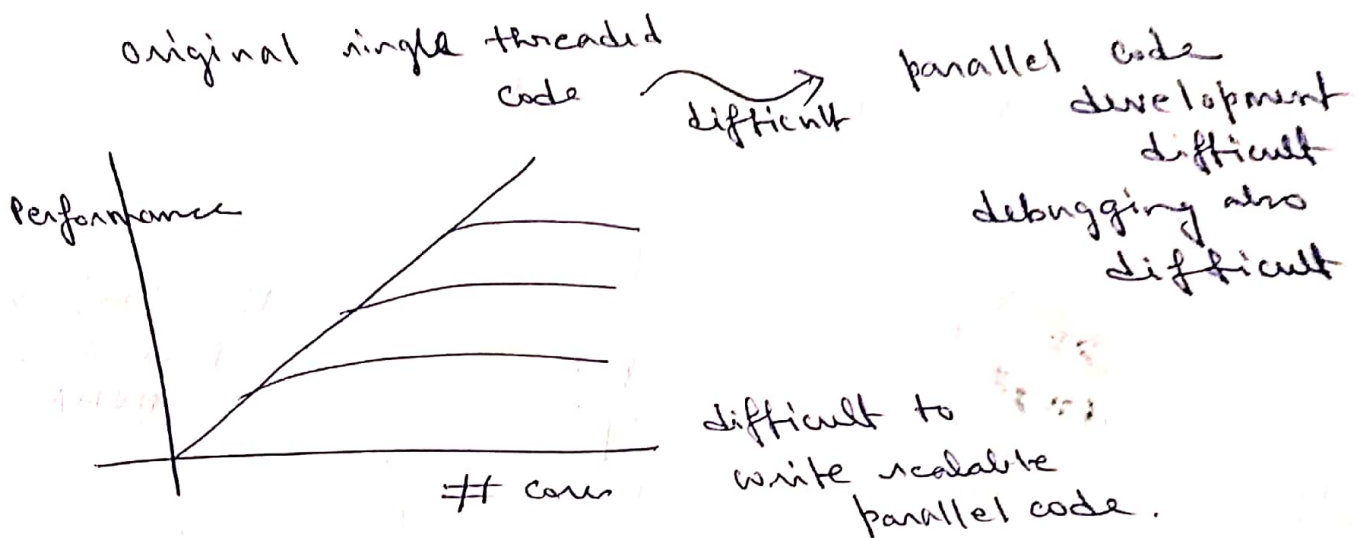 original single threaded
code
difficult
parallel code
development
difficult
debugging also
difficult
Performance
# cores
difficult to
write scalable
parallel code.